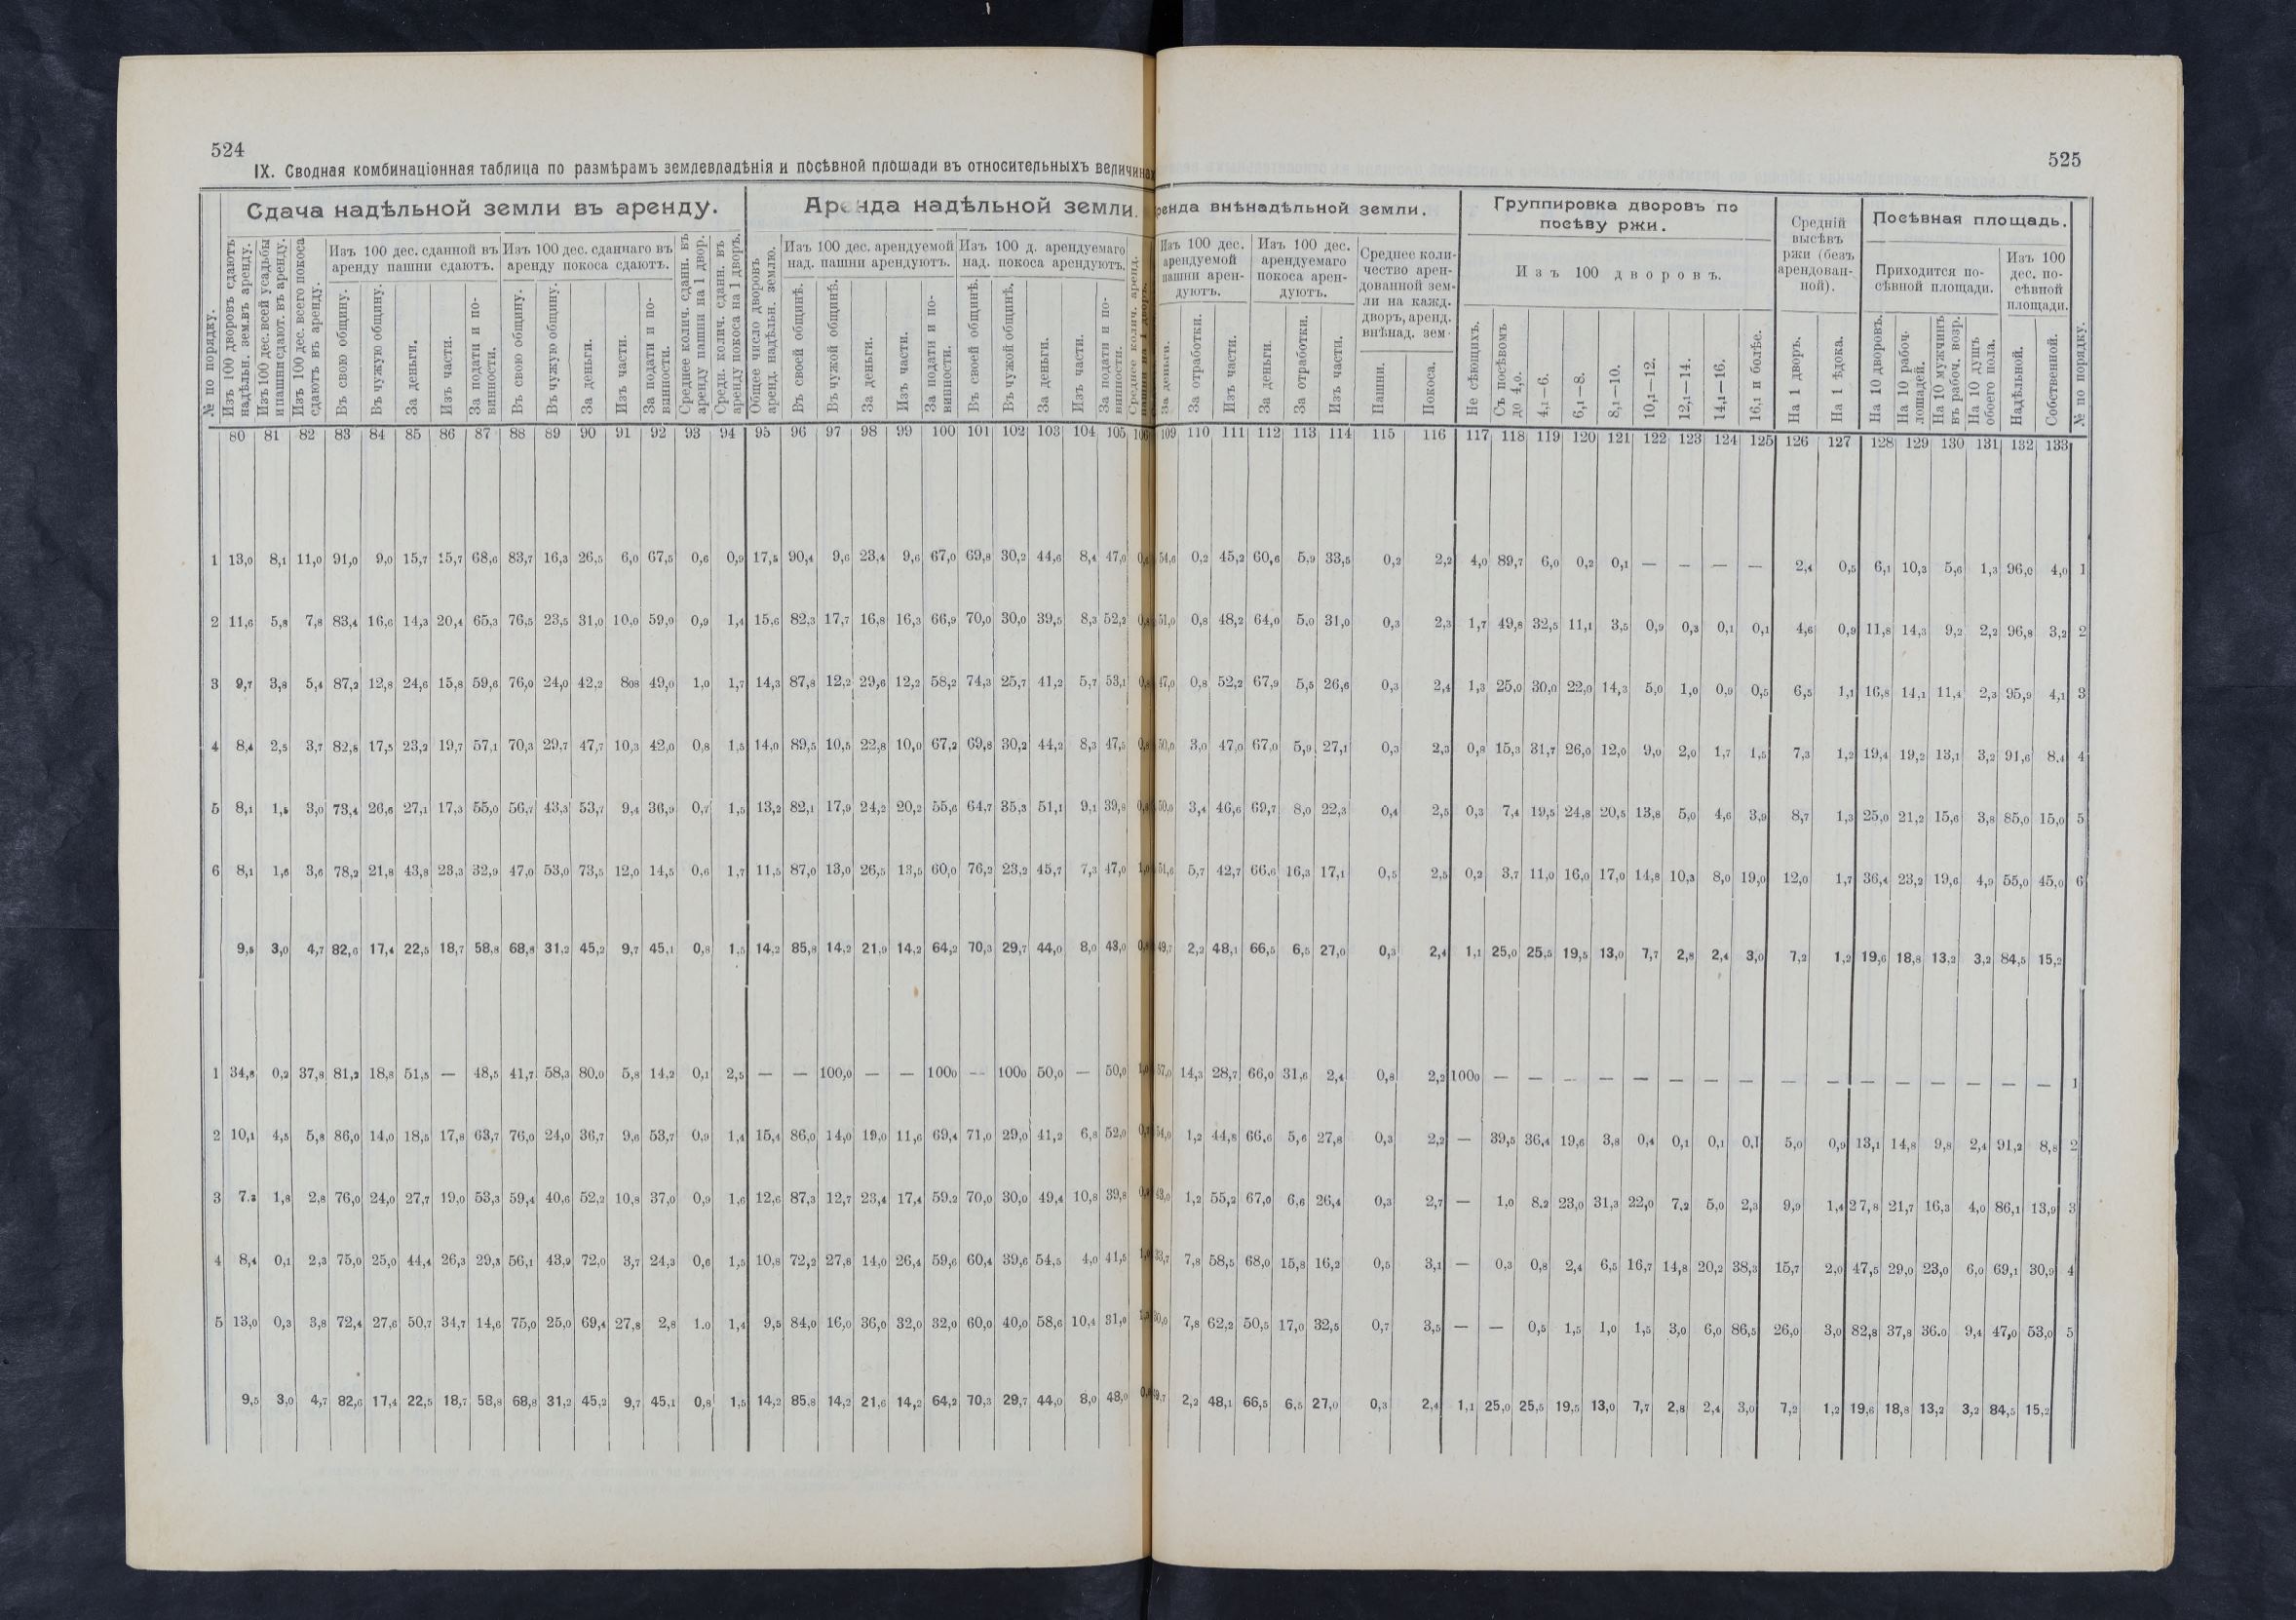 524
IX. Сводная комбинаціонная таблица по размѣрамъ землевладѣнія и посѣвной площади въ относительныхъ величинах
Сдача надѣльной земли въ аренду.
Аренда надѣльной земли.
№ по порядку.
Изъ 100 дворовъ сдаютъ надѣльн. зем. въ аренду.
Изъ 100 дес. всей усадьбы и пашни сдают. въ аренду.
Изъ 100 дес. всего покоса сдаютъ въ аренду.
Изъ 100 дес. сданной въ аренду пашни сдаютъ.
Въ свою общину.
Въ чужую общину.
За деньги.
Изъ части.
За подати и повинности.
Изъ 100 дес. сданнаго въ аренду покоса сдаютъ.
Въ свою общину.
Въ чужую общину.
За деньги.
Изъ части.
За подати и повинности.
Среднее колич. сданн. въ аренду пашни на 1 двор.
Средн. колич. сданн. въ аренду покоса на 1 дворъ.
Общее число дворовъ аренд. надѣльн. землю.
Изъ 100 дес. арендуемой над. пашни арендуютъ.
Въ своей общинѣ.
Въ чужой общинѣ.
За деньги.
Изъ части.
За подати и повинности.
Изъ 100 д. арендуемаго над. покоса арендуютъ.
Въ своей общинѣ.
Въ чужой общинѣ.
За деньги.
Изъ части.
За подати и повинности.
80 81 82 83 84 85 86 87 88 89 90 91 92 93 94 95 96 97 98 99 100 101 102 103 104 105
1 13,0 8,1 11,0 91,0 9,0 15,7 15,7 68,6 83,7 16,3 26,5 6,0 67,5 0,6 0,9 17,5 90,4 9,6 23,4 9,6 67,0 69,8 30,2 44,6 8,4 47,0
2 11,6 5,8 7,8 83,4 16,6 14,3 20,4 65,3 76,5 23,5 31,0 10,0 59,0 0,9 1,4 15,6 82,3 17,7 16,8 16,3 66,9 70,0 30,0 39,5 8,3 52,2
3 9,7 3,8 5,4 87,2 12,8 24,6 15,8 59,6 76,0 24,0 42,2 808 49,0 1,0 1,7 14,3 87,8 12,2 29,6 12,2 58,2 74,3 25,7 41,2 5,7 53,1
4 8,4 2,5 3,7 82,5 17,5 23,2 19,7 57,1 70,3 29,7 47,7 10,3 42,0 0,8 1,5 14,0 89,5 10,5 22,8 10,0 67,2 69,8 30,2 44,2 8,3 47,5
5 8,1 1,5 3,0 73,4 26,6 27,1 17,3 55,0 56,7 43,3 53,7 9,4 36,9 0,7 1,5 13,2 82,1 17,9 24,2 20,2 55,6 64,7 35,3 51,1 9,1 39,8
6 8,1 1,6 3,6 78,2 21,8 43,8 23,3 32,9 47,0 53,0 73,5 12,0 14,5 0,6 1,7 11,5 87,0 13,0 26,5 13,5 60,0 76,2 23,2 45,7 7,3 47,0
9,5 3,0 4,7 82,6 17,4 22,5 18,7 58,8 68,8 31,2 45,2 9,7 45,1 0,8 1,5 14,2 85,8 14,2 21,9 14,2 64,2 70,3 29,7 44,0 8,0 43,0
1 34,8 0,2 37,8 81,2 18,8 51,5 — 48,5 41,7 58,3 80,0 5,8 14,2 0,1 2,5 — — 100,0 — — 1000 — 1000 50,0 — 50,0
2 10,1 4,5 5,8 86,0 14,0 18,5 17,8 63,7 76,0 24,0 36,7 9,6 53,7 0,9 1,4 15,4 86,0 14,0 19,0 11,6 69,4 71,0 29,0 41,2 6,8 52,0
3 7.3 1,8 2,8 76,0 24,0 27,7 19,0 53,3 59,4 40,6 52,2 10,8 37,0 0,9 1,6 12,6 87,3 12,7 23,4 17,4 59.2 70,0 30,0 49,4 10,8 39,8
4 8,4 0,1 2,3 75,0 25,0 44,4 26,3 29,3 56,1 43,9 72,0 3,7 24,3 0,6 1,5 10,8 72,2 27,8 14,0 26,4 59,6 60,4 39,6 54,5 4,0 41,5
5 13,0 0,3 3,8 72,4 27,6 50,7 34,7 14,6 75,0 25,0 69,4 27,8 2,8 1.0 1,4 9,5 84,0 16,0 36,0 32,0 32,0 60,0 40,0 58,6 10,4 31,0
9,5 3,0 4,7 82,6 17,4 22,5 18,7 58,8 68,8 31,2 45,2 9,7 45,1 0,8 1,5 14,2 85,8 14,2 21,6 14,2 64,2 70,3 29,7 44,0 8,0 48,0
525
ренда внѣнадѣльной земли.
Группировка дворовъ по посѣву ржи.
Изъ 100 дес. арендуемой пашни арендуютъ.
За деньги.
За отработки.
Изъ части.
Изъ 100 дес. арендуемаго покоса арендуютъ.
За деньги.
За отработки.
Изъ части.
Среднее количество арендованной земли на кажд. дворъ, аренд. внѣнад. зем.
Пашни.
Покоса.
Изъ 100 дворовъ.
Не сѣющихъ.
Съ посѣвомъ до 4,0.
4,1—6.
6,1—8.
8,1—10.
10,1—12.
12,1—14.
14,1—16.
16,1 и болѣе.
Средній высѣвъ ржи (безъ арендованной).
На 1 дворъ.
На 1 ѣдока.
Посѣвная площадь.
Приходится посѣвной площади.
На 10 дворовъ.
На 10 рабоч. лошадей.
На 10 мужчинъ въ рабоч. возр.
На 10 душъ обоего пола.
Изъ 100 дес. посѣвной площади.
Надѣльной.
Собственной.
№ по порядку.
109 110 111 112 113 114 115 116 117 118 119 120 121 122 123 124 125 126 127 128 129 130 131 132 133
54,6 0,2 45,2 60,6 5,9 33,5 0,2 2,2 4,0 89,7 6,0 0,2 0,1 — — — — 2,4 0,5 6,1 10,3 5,6 1,3 96,0 4,0 1
51,0 0,8 48,2 64,0 5,0 31,0 0,3 2,3 1,7 49,8 32,5 11,1 3,5 0,9 0,3 0,1 0,1 4,6 0,9 11,8 14,3 9,2 2,2 96,8 3,2 2
47,0 0,8 52,2 67,9 5,5 26,6 0,3 2,4 1,3 25,0 30,0 22,0 14,3 5,0 1,0 0,9 0,5 6,5 1,1 16,8 14,1 11,4 2,3 95,9 4,1 3
50,0 3,0 47,0 67,0 5,9 27,1 0,3 2,3 0,8 15,3 31,7 26,0 12,0 9,0 2,0 1,7 1,5 7,3 1,2 19,4 19,2 13,1 3,2 91,6 8.4 4
50,0 3,4 46,6 69,7 8,0 22,3 0,4 2,5 0,3 7,4 19,5 24,8 20,5 13,8 5,0 4,6 3,9 8,7 1,3 25,0 21,2 15,6 3,8 85,0 15,0 5
51,6 5,7 42,7 66.6 16,3 17,1 0,5 2,5 0,2 3,7 11,0 16,0 17,0 14,8 10,3 8,0 19,0 12,0 1,7 36,4 23,2 19,6 4,9 55,0 45,0 6
49,7 2,2 48,1 66,5 6,5 27,0 0,3 2,4 1,1 25,0 25,5 19,5 13,0 7,7 2,8 2,4 3,0 7,2 1,2 19,6 18,8 13,2 3,2 84,5 15,2
57,0 14,3 28,7 66,0 31,6 2,4 0,8 2,2 1000 — — — — — — — — — — — — — — — — 1
54,0 1,2 44,8 66,6 5,6 27,8 0,3 2,2 — 39,5 36,4 19,6 3,8 0,4 0,1 0,1 0,1 5,0 0,9 13,1 14,8 9,8 2,4 91,2 8,8 2
43,0 1,2 55,2 67,0 6,6 26,4 0,3 2,7 — 1,0 8.2 23,0 31,3 22,0 7,2 5,0 2,3 9,9 1,4 27,8 21,7 16,3 4,0 86,1 13,9 3
33,7 7,8 58,5 68,0 15,8 16,2 0,5 3,1 — 0,3 0,8 2,4 6,5 16,7 14,8 20,2 38,3 15,7 2,0 47,5 29,0 23,0 6,0 69,1 30,9 4
7,8 62,2 50,5 17,0 32,5 0,7 3,5 — — 0,5 1,5 1,0 1,5 3,0 6,0 86,5 26,0 3,0 82,8 37,8 36.0 9,4 47,0 53,0 5
2,2 48,1 66,5 6,5 27,0 0,3 2,4 1,1 25,0 25,5 19,5 13,0 7,7 2,8 2,4 3,0 7,2 1,2 19,6 18,8 13,2 3,2 84,5 15,2